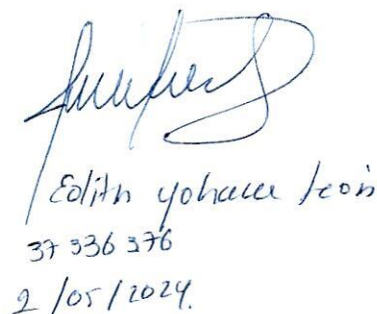 Edith yohana León
37 336 376
2 /05/2024.